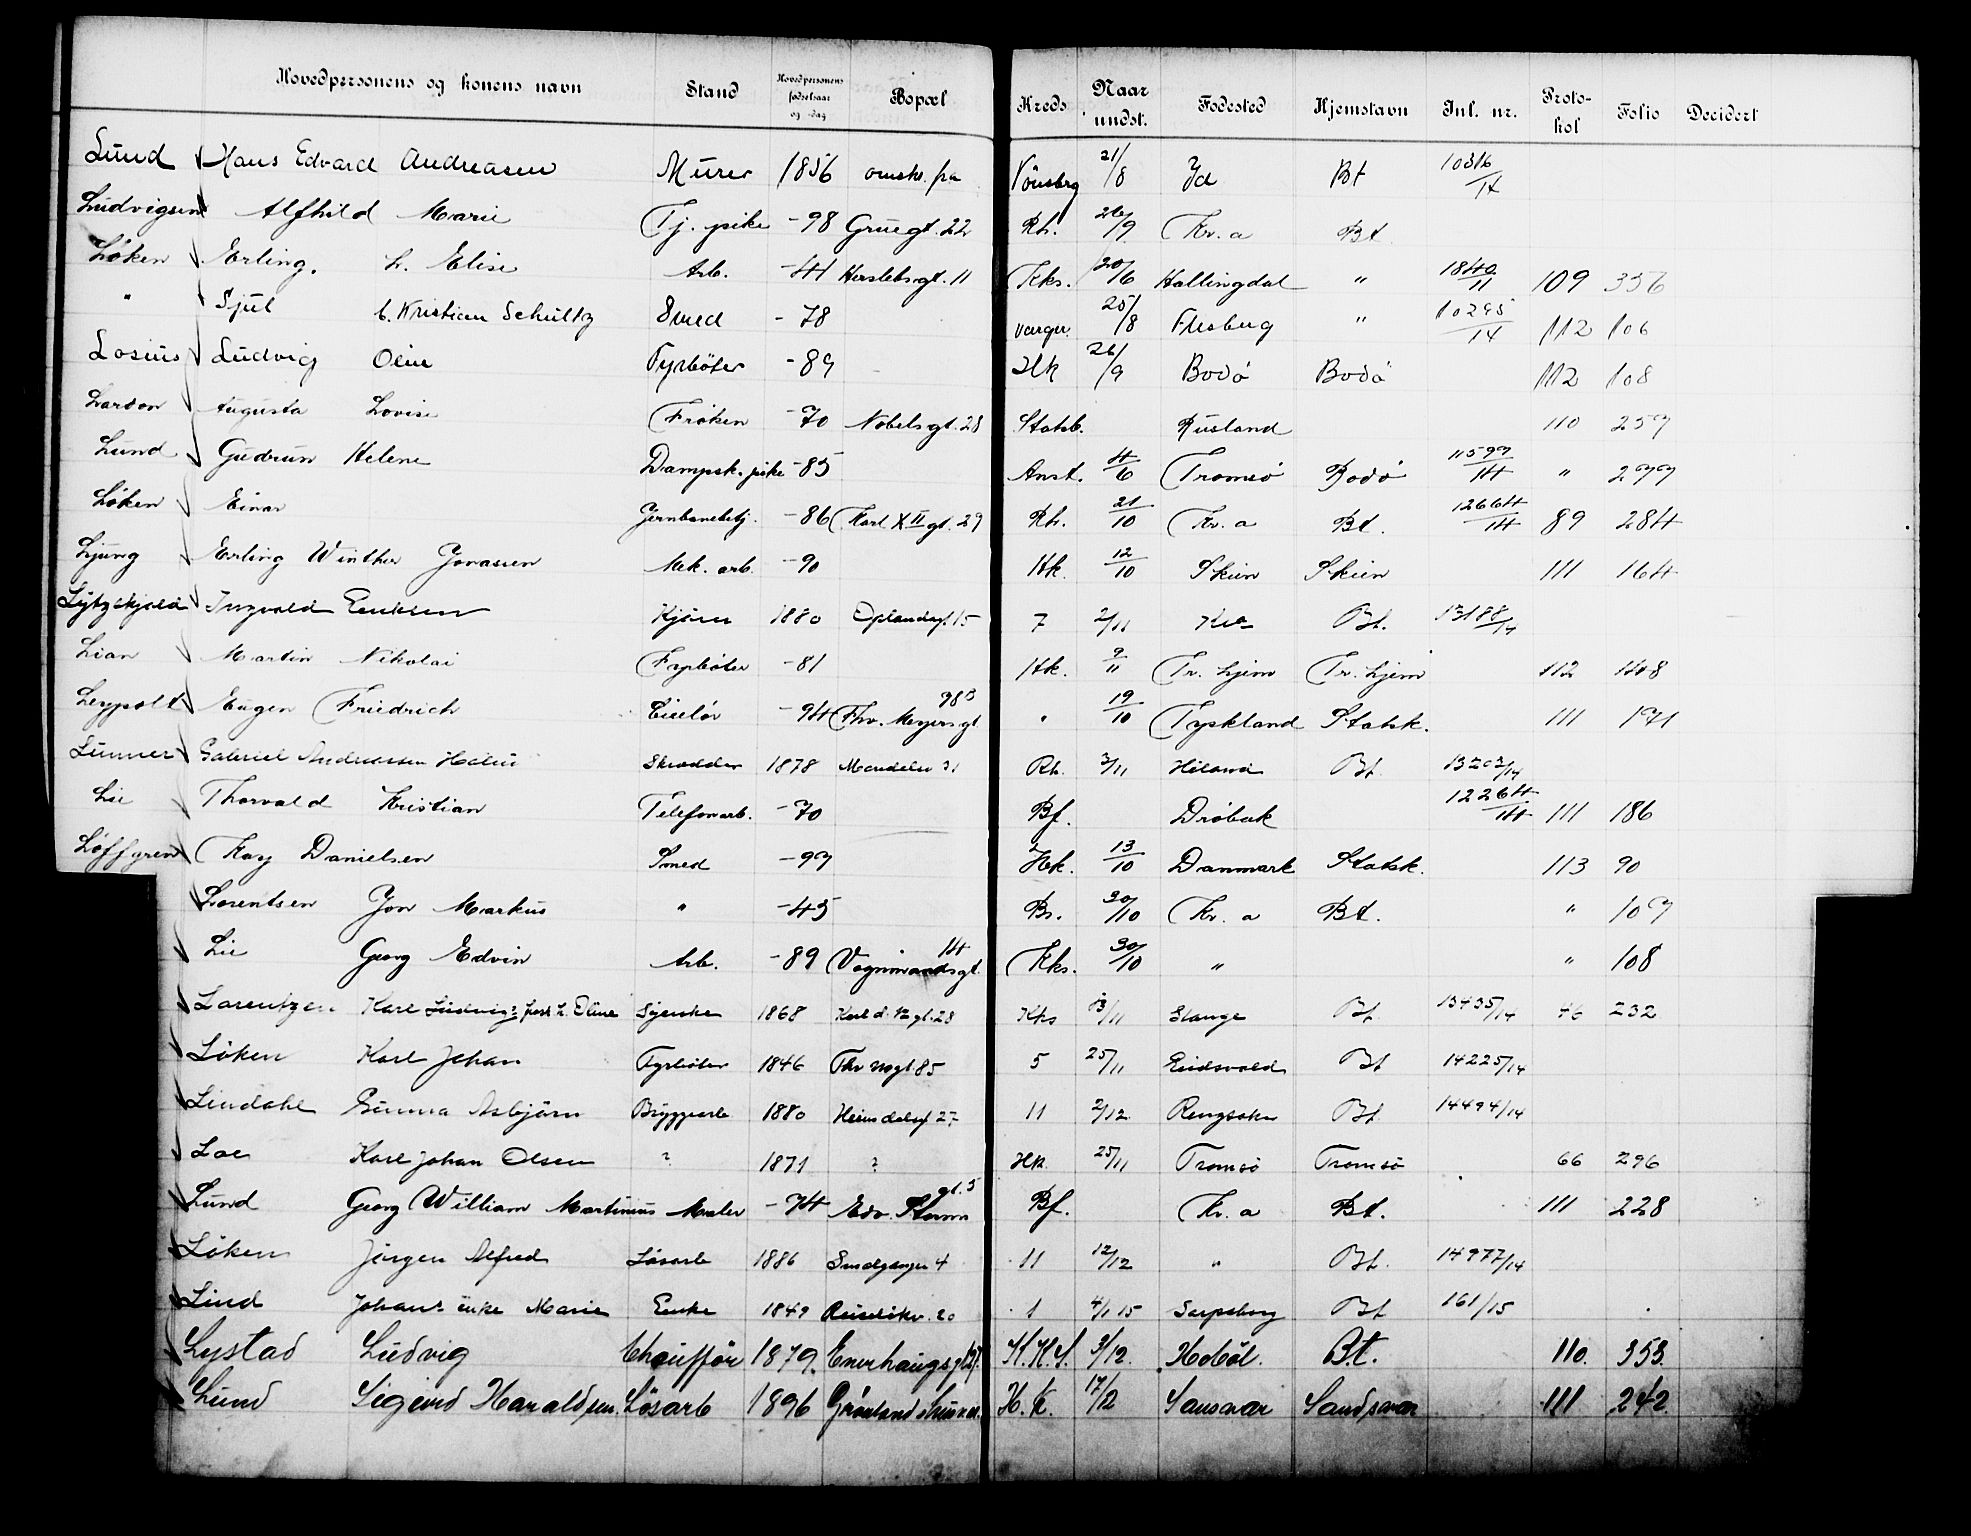 Hovedpersonens og konens navn Stand Hovedpersonens fødselsaar og -dag Bopæl Kreds Naar undst. Fødested Hjemstavn Inl. nr. Protokol Folio Decidert
Lund Hans Edvard Andreasen Murer 1856 omstr. fra Tönsberg 21/8 Id Bt 10316/14
Ludvigsen Alfhild Marie Tj. pike -98 Gruegt. 22 Rh. 26/9 Kr.a Bt.
Løken Erling. h. Elise Arb. -41 Herslebsgt. 11 Kks. 20/6 Hallingdal " 1840/11 109 356
" Sjul Kristian Schultz Smed -78 25/8 Flesberg " 10295/14 112 106
Losius Ludvig Oline Fyrböter -89 Hk 26/9 Bodö Bodö 112 108
Lardon Augusta Lovise Frøken -70 Nobelsgt. 28 Statsb. Rusland 110 257
Lund Gudrun Helene Dampsk. pike -85 Anst. 4/6 Tromsö Bodö 11599/14 " 299
Løken Einar Jernbanebetj. -86 Karl XII gt. 29 Rh. 21/10 Kr.a Bt. 12664/14 89 284
Ljung Erling Winther Jonassen Mek. arb. -90 Hk. 12/10 Skien Skien 111 164
Lytzskjold Ingvald Eriksen Kjörer 1880 Oplandsgt. 15 7 2/11 Kra Bt. 13188/14
Lian Martin Nikolai Fyrböter -81 Hk. 9/11 Tr. hjem Tr. hjem 112 408
Leypoldt Eugen Friedrich Ciselör -94 Thv. Meyersgt 983 " 19/10 Tyskland Statsk. 111 171
Lunner Gabriel Andreassen Skrædder 1878 31 Rh. 3/11 Höland Bt. 13203/14
Lie Thorvald Kristian Telefonarb. -70 Bf. Drøbak 12264/14 111 186
Løffgren Kay Danielsen Smed -97 Hk. 13/10 Danmark Statsk. 113 90
Lorentsen Jon Markus " -45 Br. 30/10 Kr.a Bt. " 107
Lie Georg Edvin Arb. -89 Vognmandsgt. 14 Kks. 30/10 " " 108
Lorentzen Karl Ludvigs h. Oline 1868 Karl d. 12 gt. 28 Kks 13/11 Stange Bt. 13435/14 46 232
Löken Karl Johan Fyrböter 1846 Thv Mgt. 85 5 25/11 Eidsvold Bt 14225/14
Lindahl Gunna Asbjörn Bryggearb 1880 Heimdalsgt 27 11 2/12 Ringsaker Bt 14494/14
Loe Karl Johan Olsen ? 1871 ? Hk. 25/11 Tromsö Tromsö 66 296
Lund Georg William Martinius Maler -74 Edv. Storms gt. 5 Bf. Kr.a Bt. 111 228
Löken Jörgen Alfred Løsarb 1886 Smedgangen 4 11 12/12 " Bt. 14977/14
Lind Johans enke Marie Enke 1849 20 1 4/1 15 Sarpsborg Bt 161/15
Lystad Ludvig Chaufför 1879. Enerhaugsgt 27. K.K.S. 3/12. Hobøl. Bt. 110. 353.
Lund Sigurd Haraldsen. Løsarb 1896 H.K. 17/12 Sansvær Sandsvær 111 242